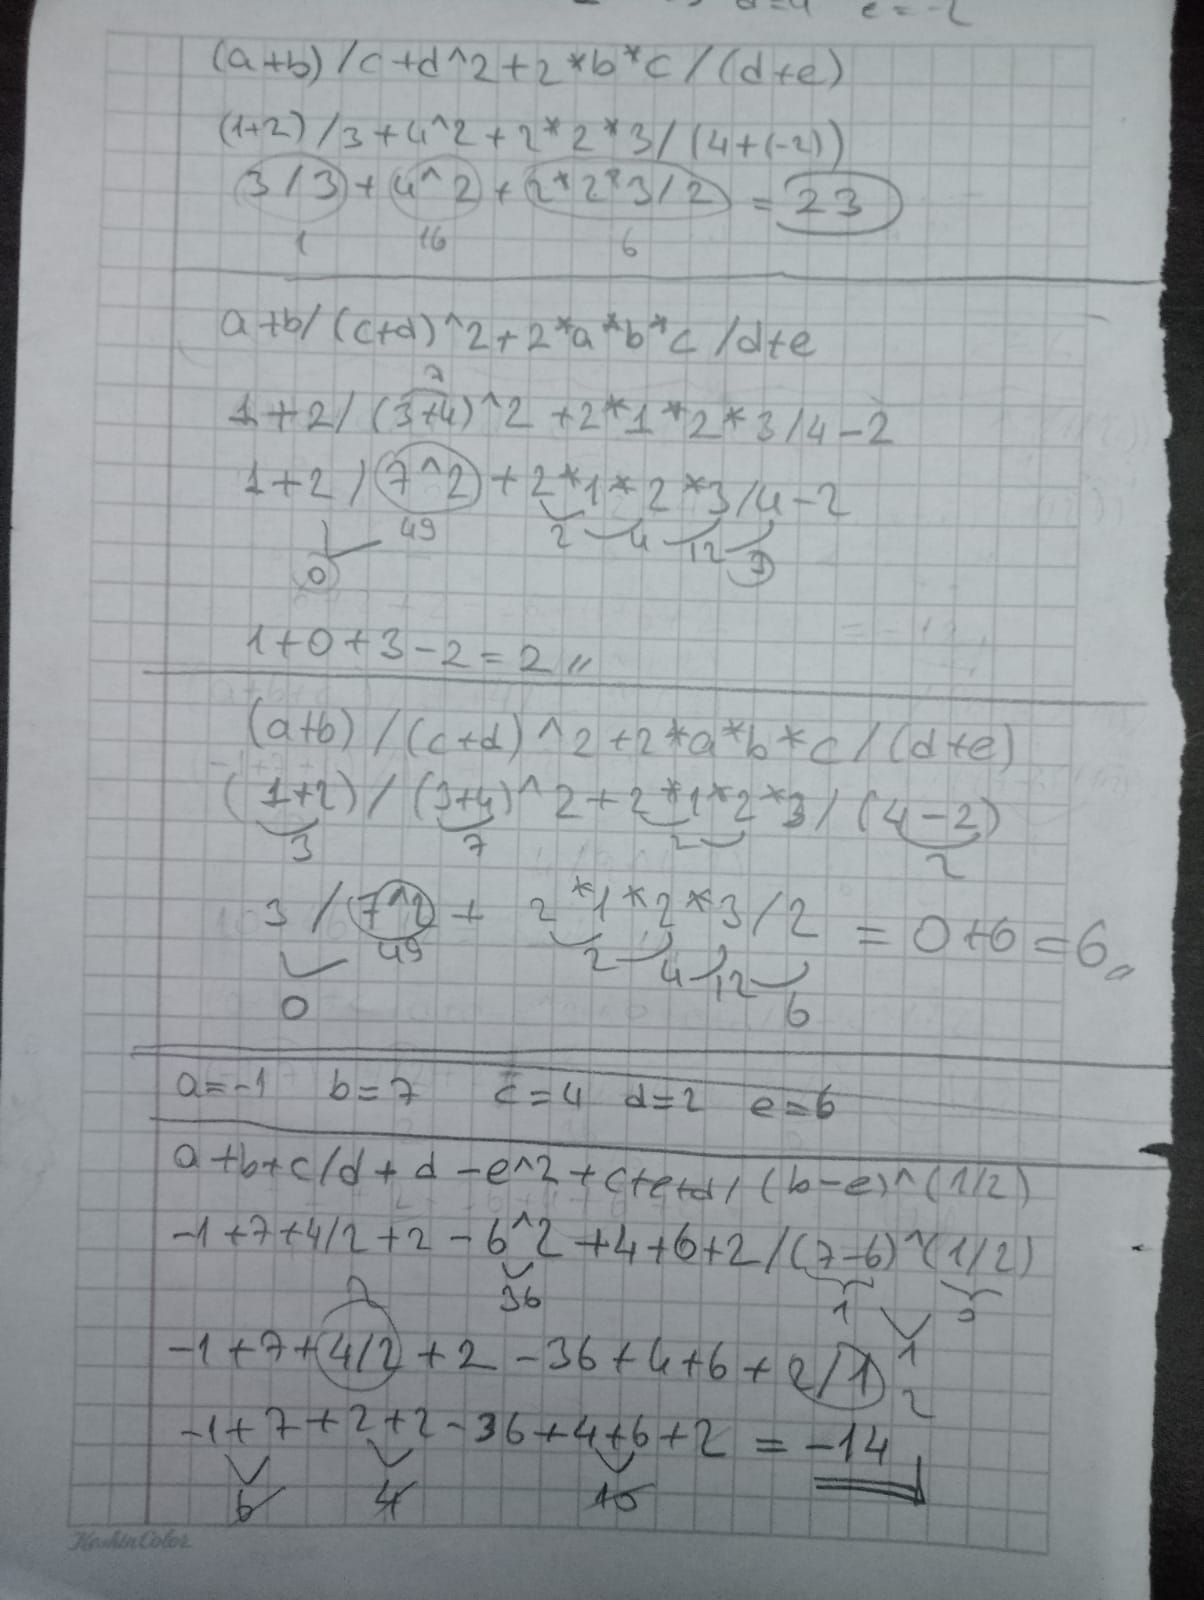 d=4 e=-2
(a+b)/c+d^2+2*b*c/(d+e)
(1+2)/3+4^2+2*2*3/(4+(-2))
3/3+4^2+2*2*3/2=23
1 16 6
a+b/(c+d)^2+2*a*b*c/d+e
7
1+2/(3+4)^2+2*1*2*3/4-2
1+2/(7^2)+2*1*2*3/4-2
49 2 4 12 3
0
1+0+3-2=2//
(a+b)/(c+d)^2+2*a*b*c/(d+e)
(1+2)/(3+4)^2+2*1*2*3/(4-2)
3 7 2 2
3/(7^2)+2*1*2*3/2=0+6=6
49 2 4 12 6
0
a=-1 b=7 c=4 d=2 e=6
a+b+c/d+d-e^2+c+e+d/(b-e)^(1/2)
-1+7+4/2+2-6^2+4+6+2/(7-6)^(1/2)
2 36 1
-1+7+4/2+2-36+4+6+2/1 1
2
-1+7+2+2-36+4+6+2=-14
6 4 10
KeskinColor